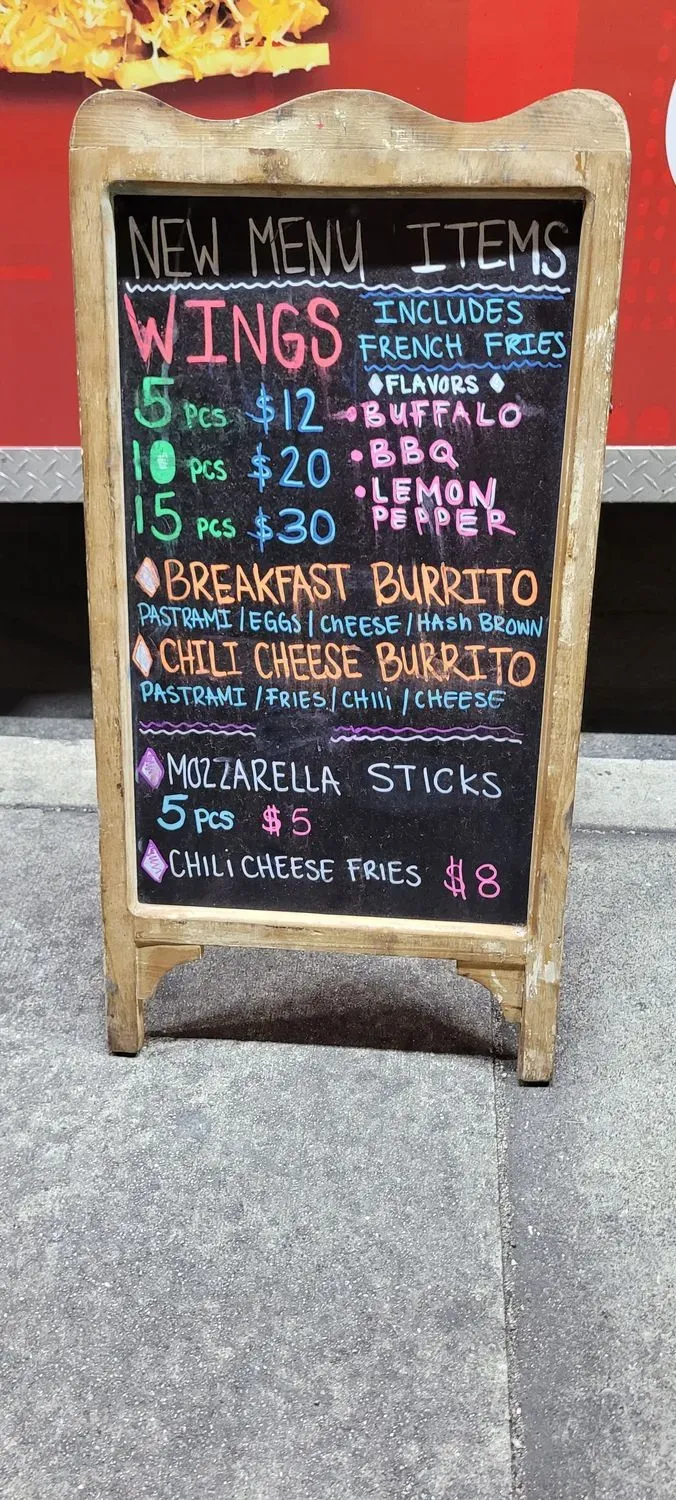 NEW MENU ITEMS
WINGS
INCLUDES
FRENCH FRIES
5 PCS $12
10 PCS $20
15 PCS $30
FLAVORS
• BUFFALO
• BBQ
• LEMON
PEPPER
BREAKFAST BURRITO
PASTRAMI / EGGS / CHEESE / HASH BROWN
CHILI CHEESE BURRITO
PASTRAMI / FRIES / CHILi / CHEESE
MOZZARELLA STICKS
5 PCS $5
CHILi CHEESE FRIES $8